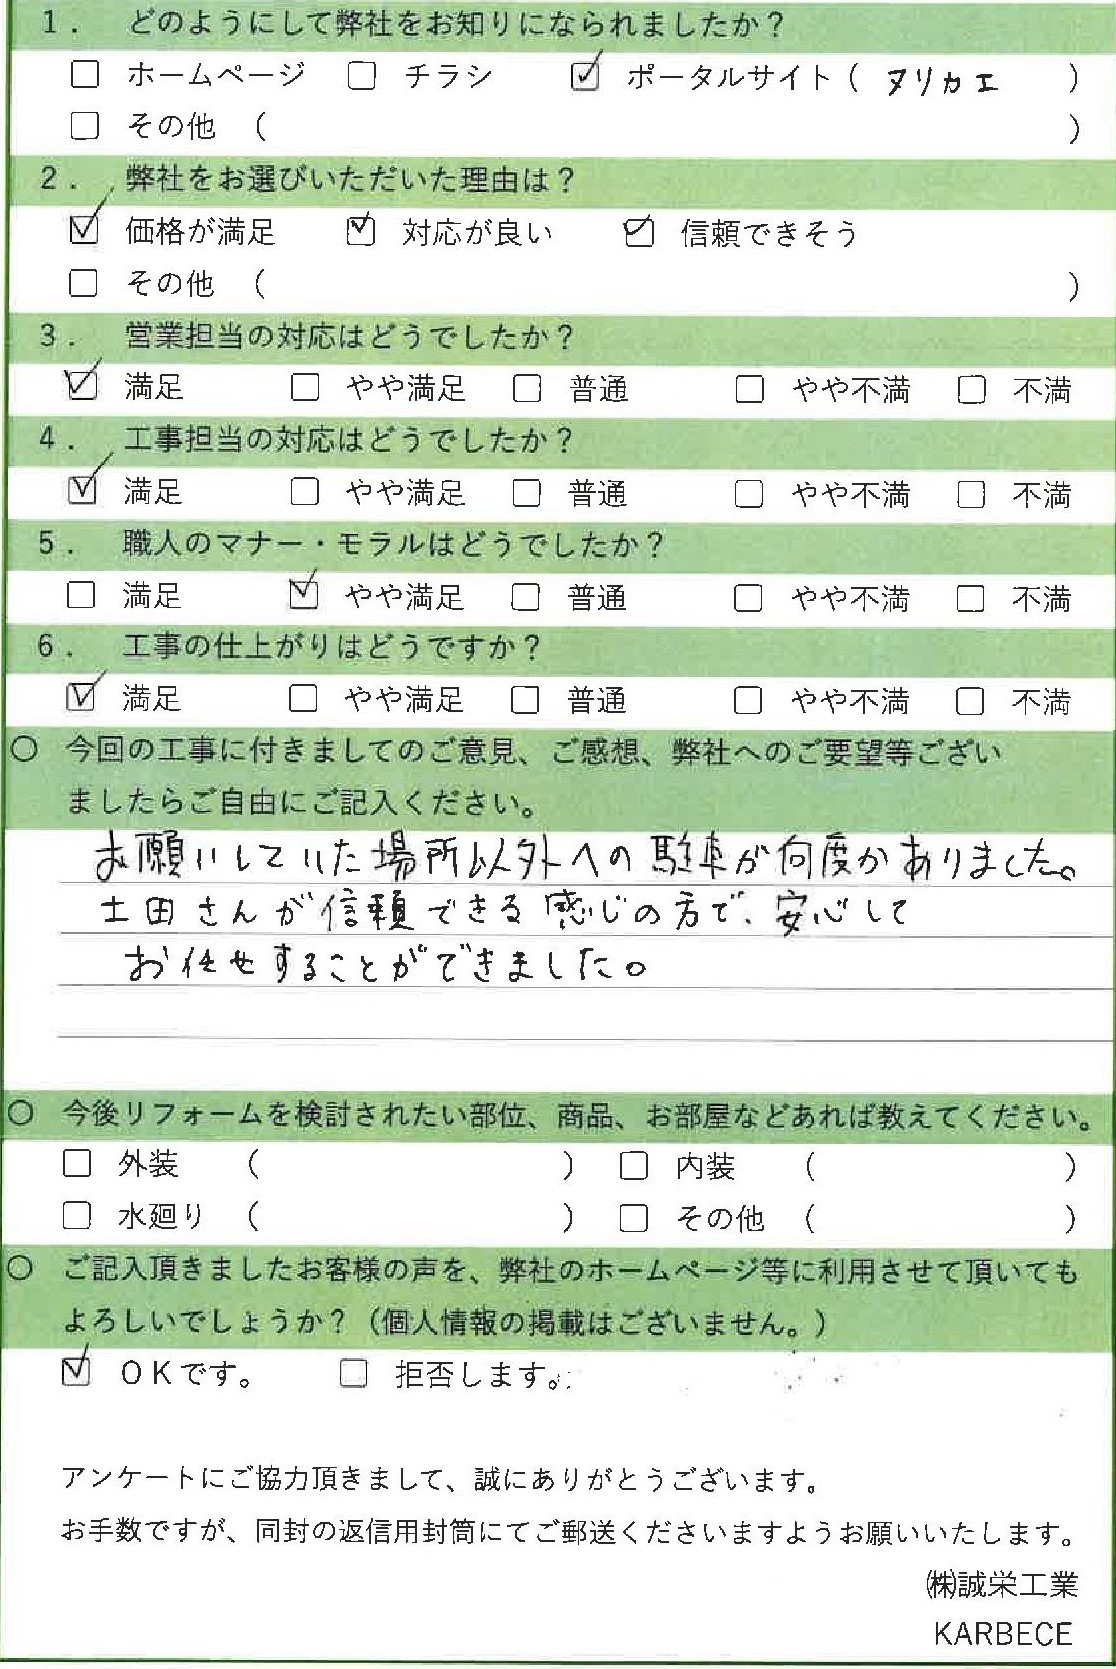 1. どのようにして弊社をお知りになられましたか?
□ ホームページ □ チラシ ☑ ポータルサイト( ヌリカエ )
□ その他 ( )
2. 弊社をお選びいただいた理由は?
☑ 価格が満足 ☑ 対応が良い ☑ 信頼できそう
□ その他 ( )
3. 営業担当の対応はどうでしたか?
☑ 満足 □ やや満足 □ 普通 □ やや不満 □ 不満
4. 工事担当の対応はどうでしたか?
☑ 満足 □ やや満足 □ 普通 □ やや不満 □ 不満
5. 職人のマナー・モラルはどうでしたか?
□ 満足 ☑ やや満足 □ 普通 □ やや不満 □ 不満
6. 工事の仕上がりはどうですか?
☑ 満足 □ やや満足 □ 普通 □ やや不満 □ 不満
○ 今回の工事に付きましてのご意見、ご感想、弊社へのご要望等ござい
ましたらご自由にご記入ください。
お願いしていた場所以外への駐車が何度かありました。
土田さんが信頼できる感じの方で、安心して
お任せすることができました。
○ 今後リフォームを検討されたい部位、商品、お部屋などあれば教えてください。
□ 外装 ( ) □ 内装 ( )
□ 水廻り ( ) □ その他 ( )
○ ご記入頂きましたお客様の声を、弊社のホームページ等に利用させて頂いても
よろしいでしょうか?(個人情報の掲載はございません。)
☑ OKです。 □ 拒否します。
アンケートにご協力頂きまして、誠にありがとうございます。
お手数ですが、同封の返信用封筒にてご郵送くださいますようお願いいたします。
㈱誠栄工業
KARBECE